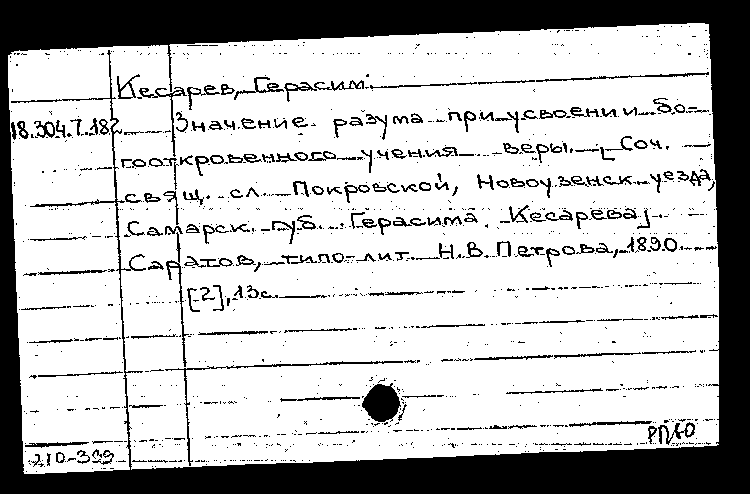 Кесарев, Герасим.
18.304.7.182 Значение разума при усвоении бо-
гооткровенного учения веры. [Соч.
свящ. сл. Покровской, Новоузенск. уезда,
Самарск. губ. Герасима Кесарева].
Саратов, типо-лит. Н.В. Петрова, 1890.
[2], 13с.
210-399